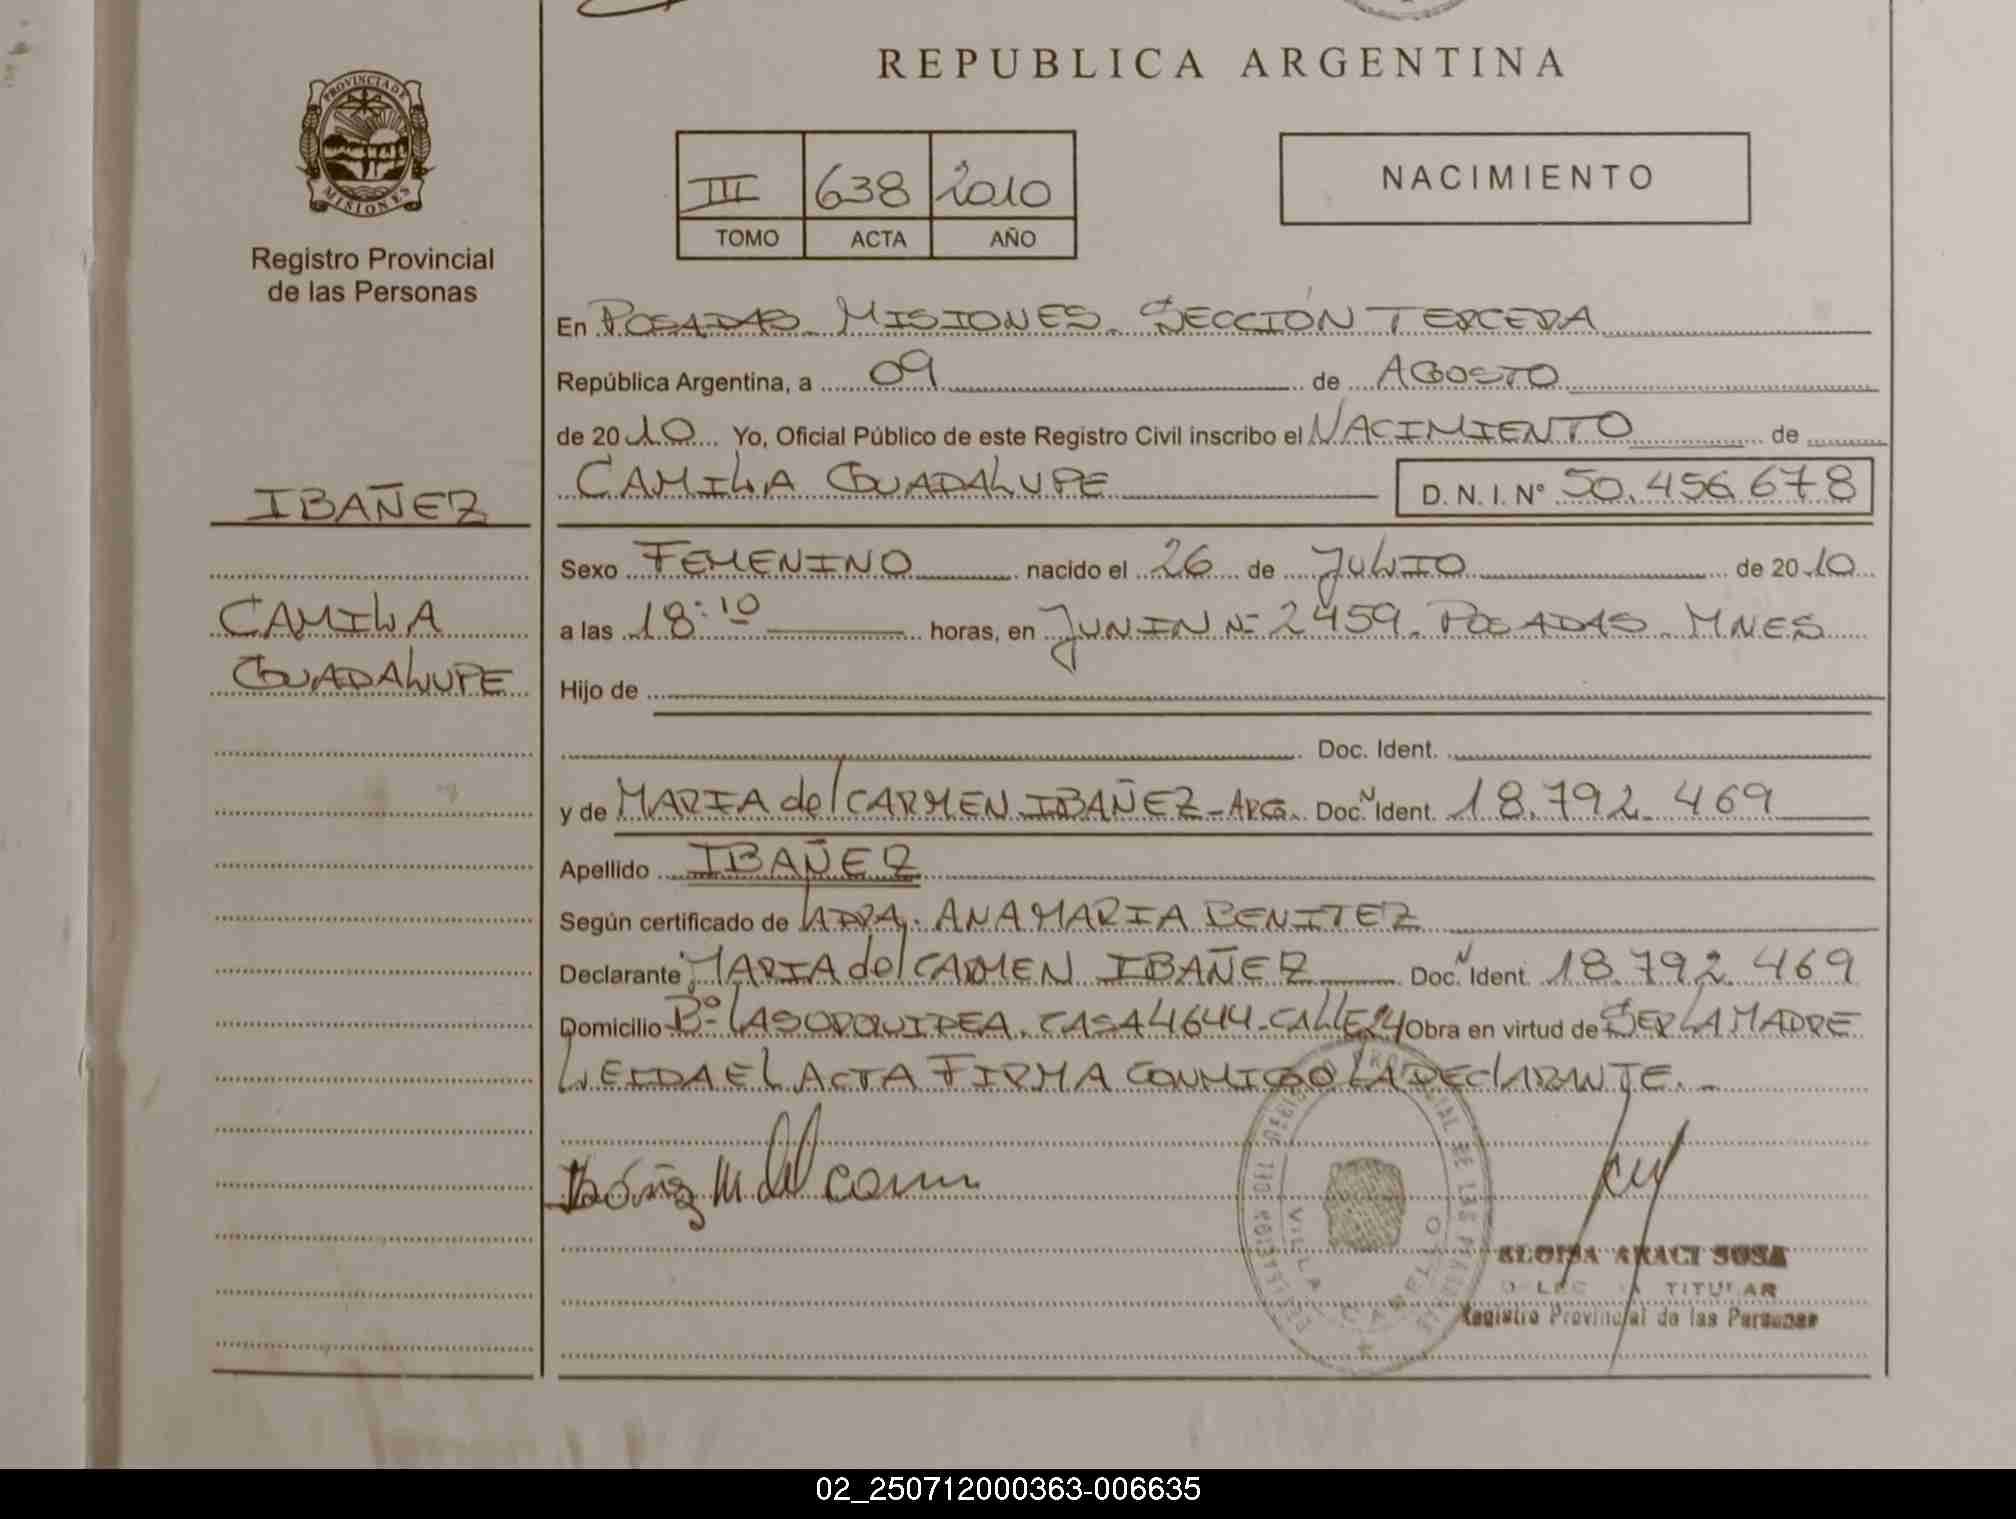 REPUBLICA ARGENTINA
PROVINCIA DE
MISIONES
Registro Provincial
de las Personas
III 638 2010
TOMO ACTA AÑO
NACIMIENTO
En POSADAS. MISIONES. SECCIÓN TERCERA
República Argentina, a 09 de AGOSTO
de 2010 Yo, Oficial Público de este Registro Civil inscribo el NACIMIENTO de
CAMILA GUADALUPE D.N.I. Nº 50.456.678
IBAÑEZ
CAMILA
GUADALUPE
Sexo FEMENINO nacido el 26 de JULIO de 2010
a las 18:10 horas, en JUNIN Nº 2459. POSADAS. MNES
Hijo de
Doc. Ident.
y de MARIA del CARMEN IBAÑEZ - ARG. Doc. N Ident. 18.792.469
Apellido IBAÑEZ
Según certificado de LA DRA. ANA MARIA BENITEZ
Declarante MARIA del CARMEN IBAÑEZ Doc. N Ident. 18.792.469
Domicilio Bº LAS ORQUIDEA. CASA 4644 - CALLE 24 Obra en virtud de SER LA MADRE
LEIDA EL ACTA FIRMA CONMIGO LA DECLARANTE. -
Ibáñez M del Carm
REGISTRO PROVINCIAL DE LAS PERSONAS
VILLA CABELLO
ELOISA ARACI SOSA
TITULAR
Registro Provincial de las Personas
02_250712000363-006635